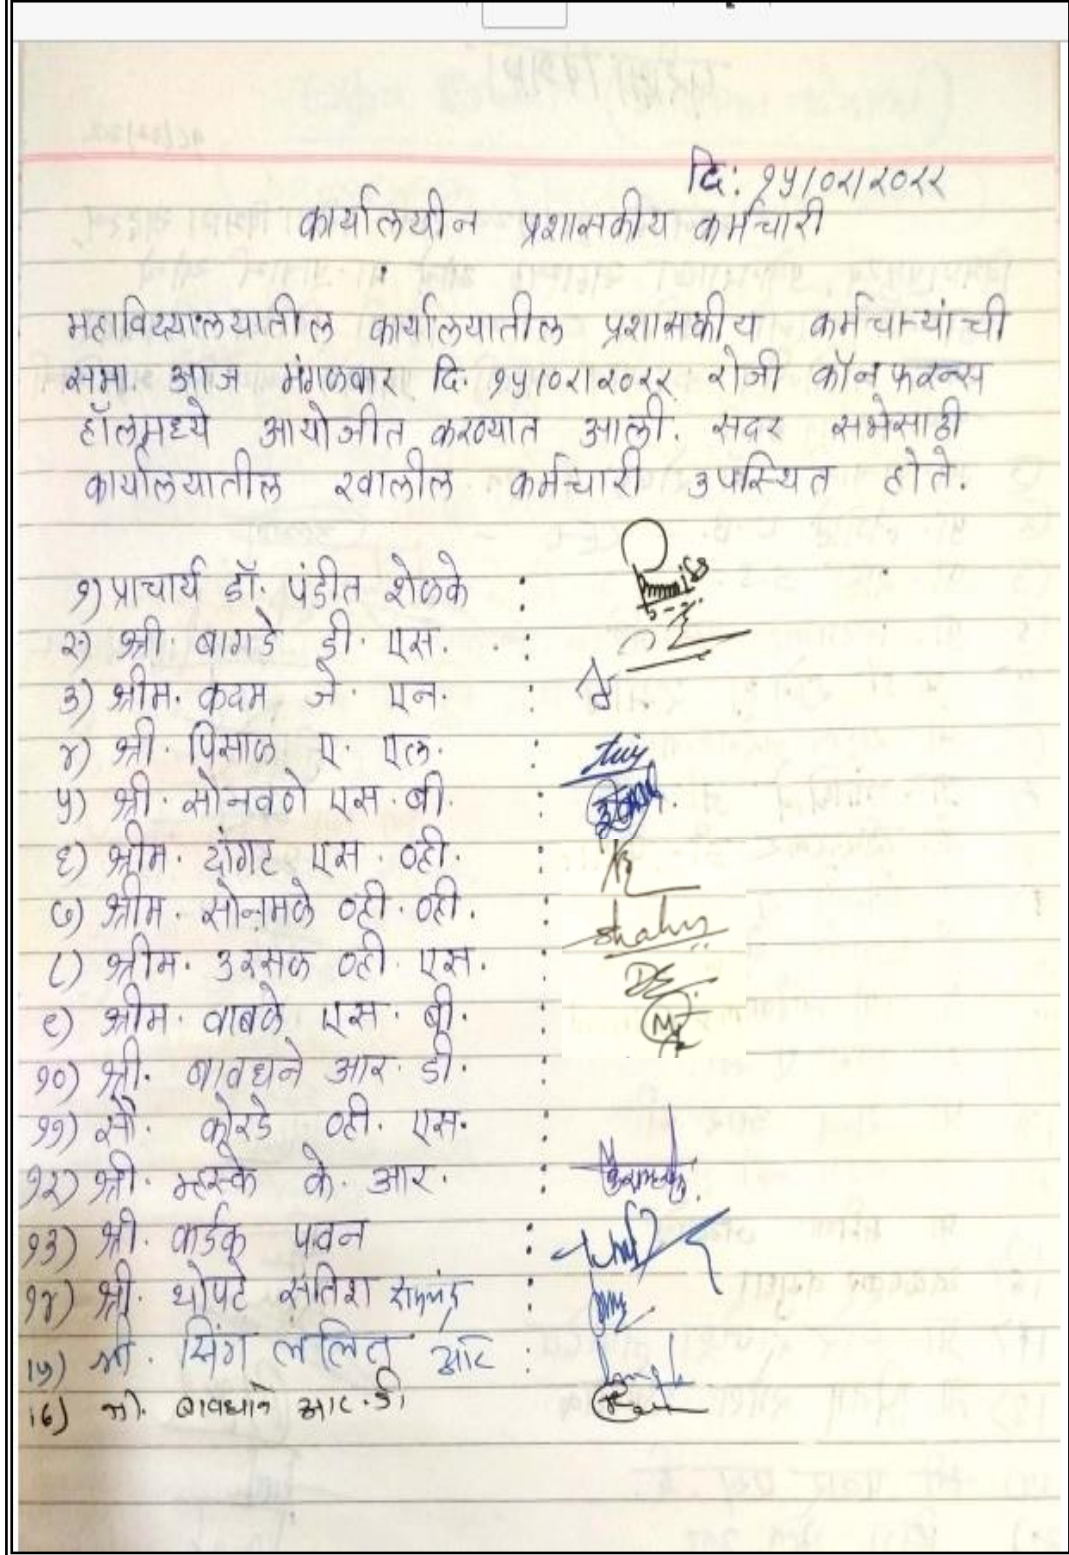 दि: १५/०२/२०२२
कार्यालयीन प्रशासकीय कर्मचारी
महाविद्यालयातील कार्यालयातील प्रशासकीय कर्मचाऱ्यांची
सभा. आज मंगळवार दि. १५/०२/२०२२ रोजी कॉनफरन्स
हॉलमध्ये आयोजीत करण्यात आली. सदर सभेसाठी
कार्यालयातील खालील कर्मचारी उपस्थित होते.
१) प्राचार्य डॉ. पंडीत शेळके :
२) श्री. बागडे डी. एस. :
३) श्रीम. कदम जे. एन. :
४) श्री. पिसाळ ए. एल. :
५) श्री. सोनवणे एस. बी. :
६) श्रीम. दांगट एस. व्ही. :
७) श्रीम. सोनमळे व्ही. व्ही. :
८) श्रीम. उरसळ व्ही. एस. :
९) श्रीम. वाबळे एस. बी. :
१०) श्री. बावधने आर. डी. :
११) सौ. कोरडे व्ही. एस. :
१२) श्री. म्हस्के के. आर. :
१३) श्री. कार्डक पवन :
१४) श्री. थोपटे सतिश :
15) श्री. सिंग ललित आर :
16) श्री. बावधाने आर. डी